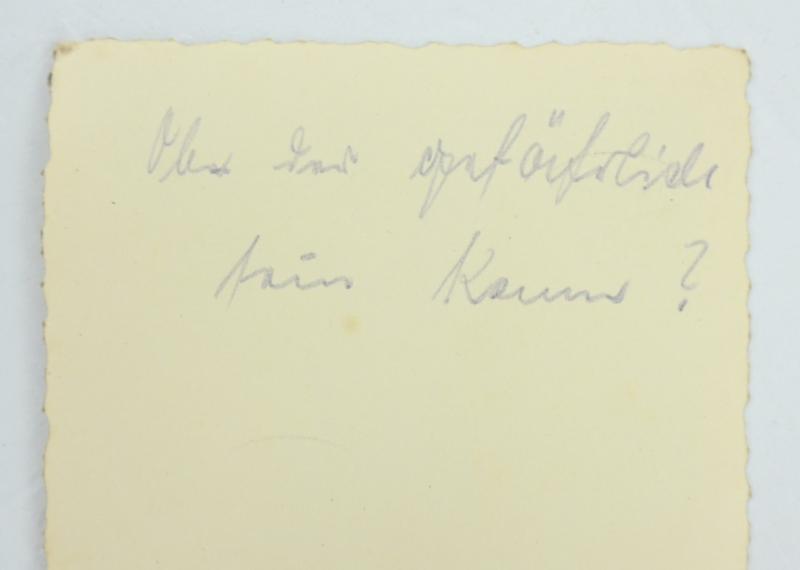 Ob der gefährlich
sein kann?